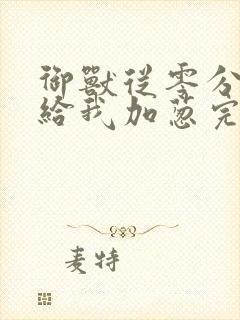 御獸從零分
給我加蔥完
麦特